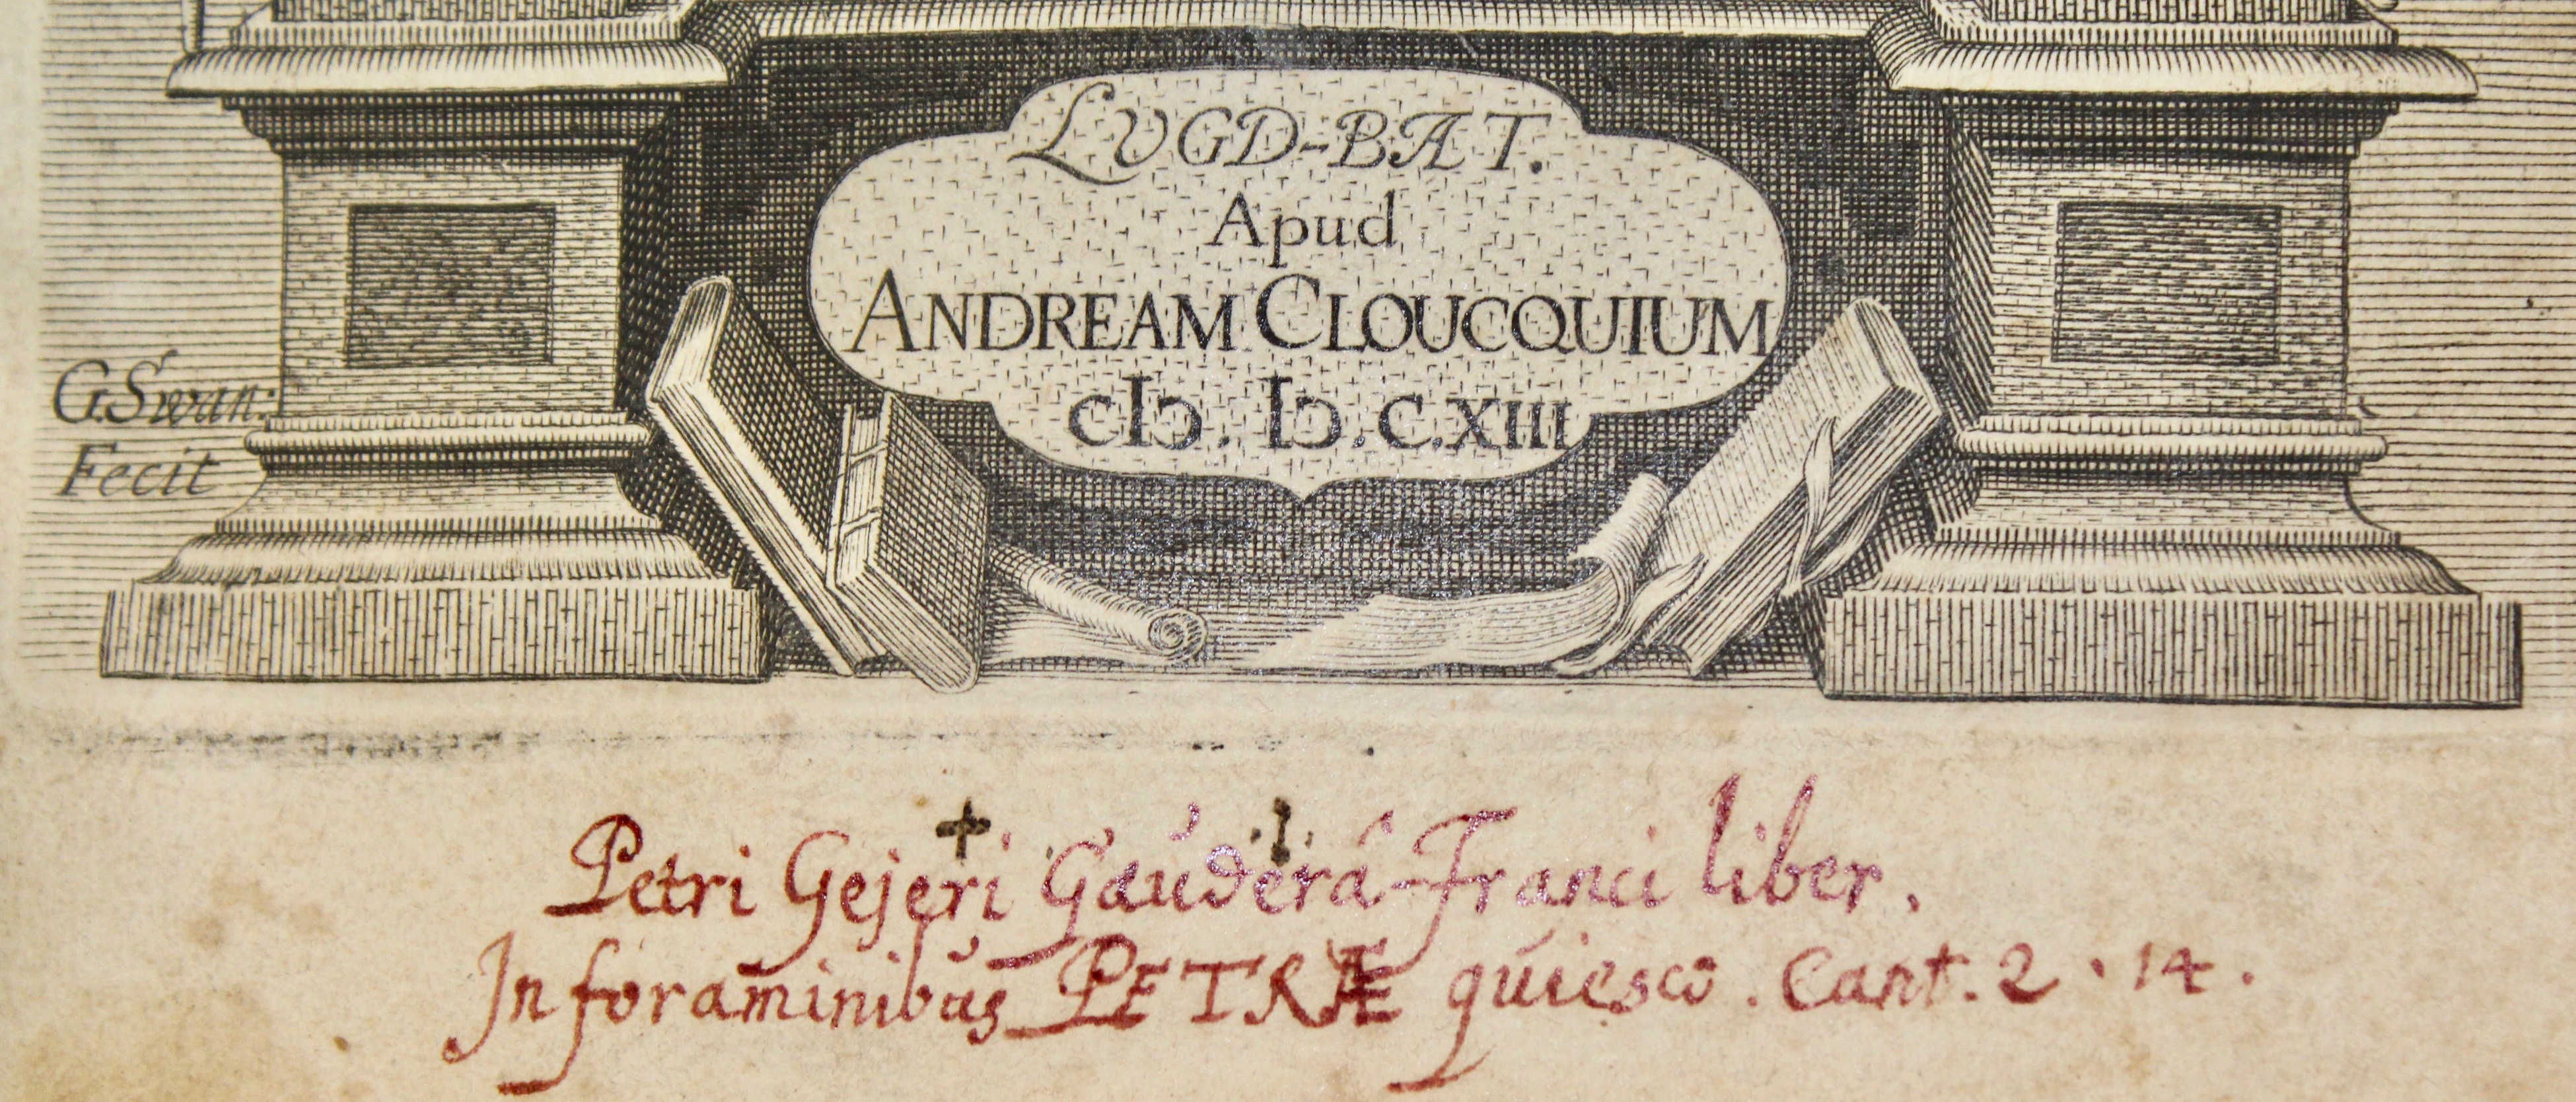 LVGD-BAT.
Apud
ANDREAM CLOUCQUIUM
cIↄ. Iↄ.C.XIII
G.Swan:
Fecit
Petri Gejeri Gaúderâ-Franci liber.
In foraminibus PETRÆ qúiesco. Cant. 2. 14.